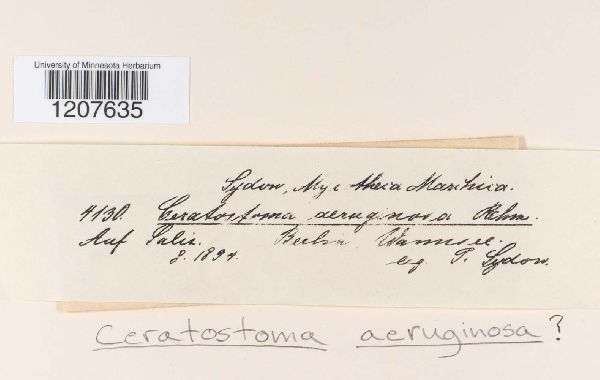 University of Minnesota Herbarium
1207635
Sydow, Mycotheca Marchica.
4130. Ceratostoma aeruginosa Rehm.
Auf Salix. Berlin Wannsee.
8. 1894. leg. P. Sydow.
Ceratostoma aeruginosa?